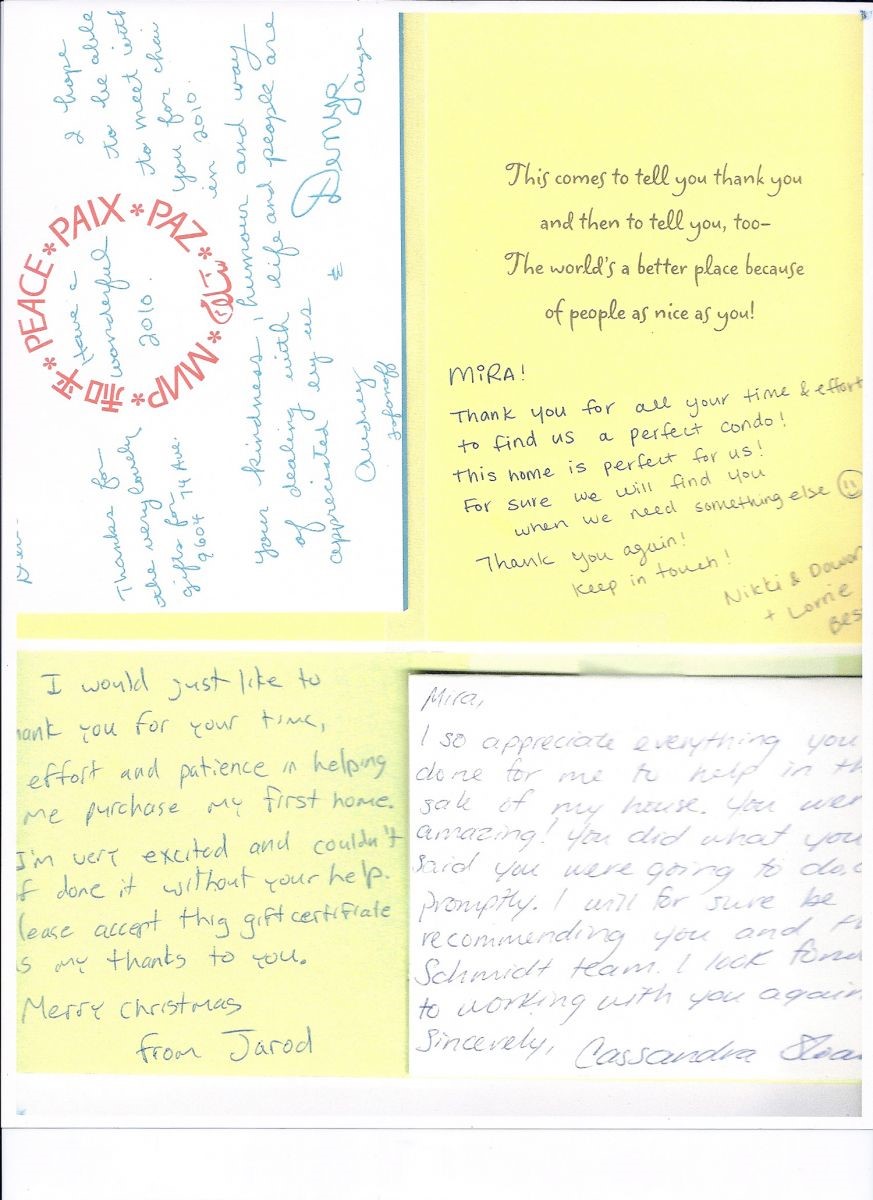 I hope
to be able
to meet with
you for chai
in 2010.
PEACE * PAIX * PAZ * * МИР * 和平 *
Have a
wonderful
2010.
Thanks for
the very lovely
gifts for
9604 74 Ave.
your kindness, humour and way
of dealing with life and people are
appreciated by us
Audrey
&
This comes to tell you thank you
and then to tell you, too–
The world's a better place because
of people as nice as you!
MIRA!
Thank you for all your time & effort
to find us a perfect condo!
This home is perfect for us!
For sure we will find you
when we need something else
Thank you again!
Keep in touch!
Nikki &
+ Lorrie
I would just like to
hank you for your time,
effort and patience in helping
me purchase my first home.
I'm very excited and couldn't
f done it without your help.
lease accept this gift certificate
s my thanks to you.
Merry Christmas
from Jarod
Mira,
I so appreciate everything you
done for me to help in th
sale of my house. You wer
amazing! You did what you
said you were going to do,
promptly. I will for sure be
recommending you and th
Schmidt team. I look forw
to working with you again
Sincerely, Cassandra